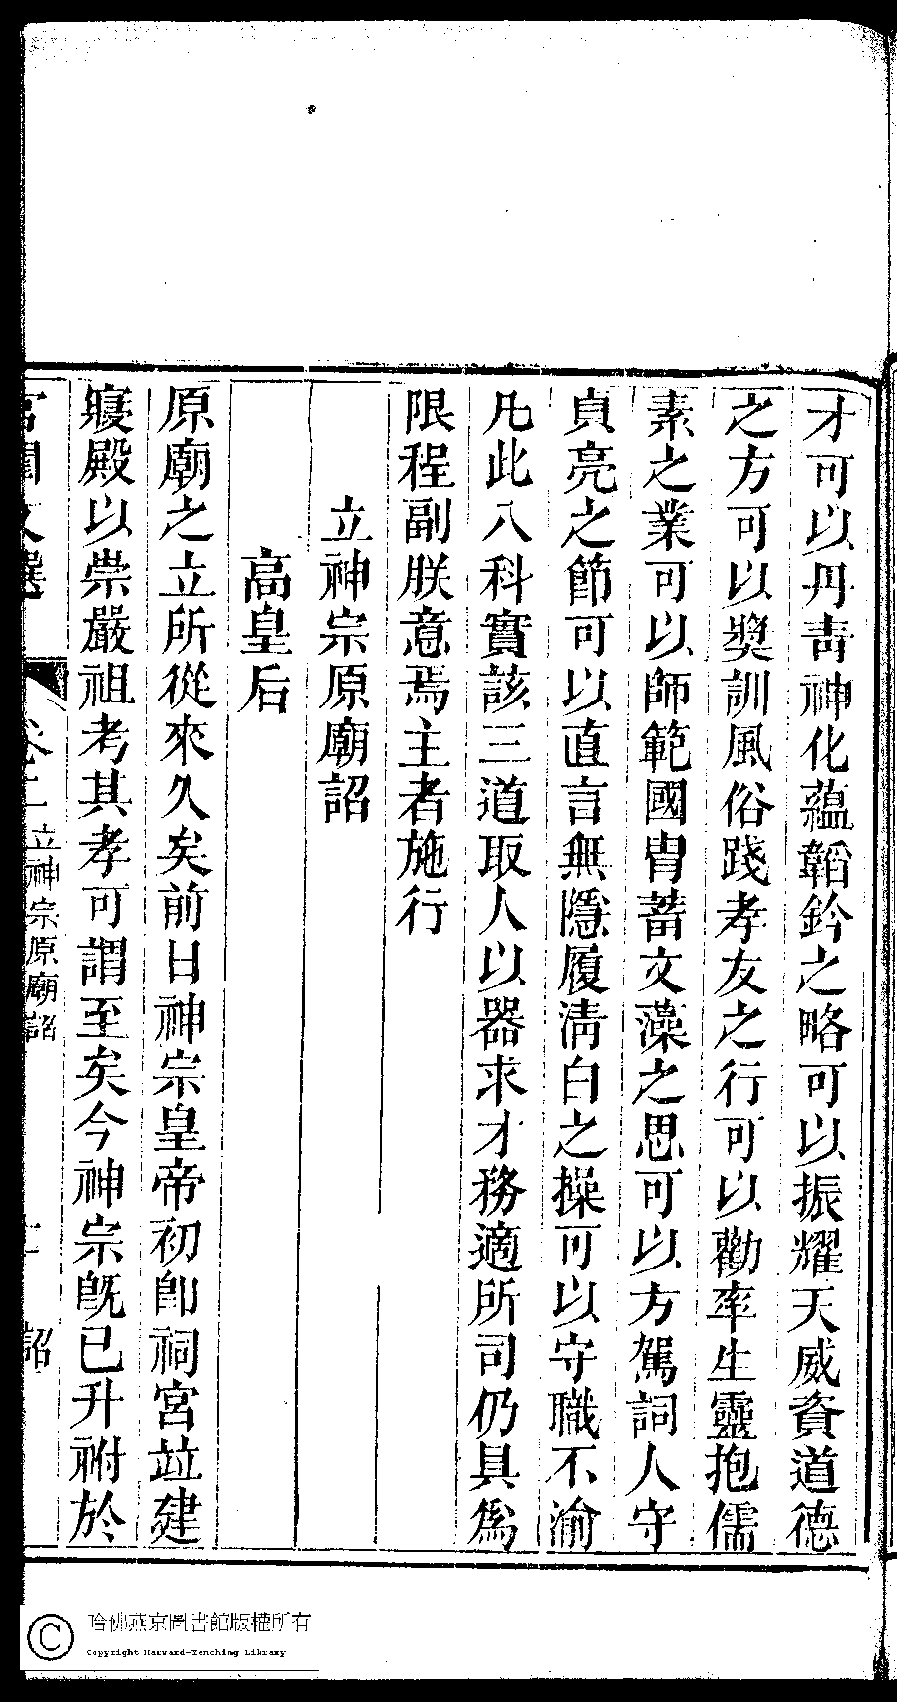 才可以丹青神化蘊韜鈐之略可以振耀天威資道德
之方可以奬訓風俗踐孝友之行可以勸率生靈抱儒
素之業可以師範國胄蓄文藻之思可以方駕詞人守
貞亮之節可以直言無隱履淸白之操可以守職不渝
凡此八科實該三道取人以器求才務適所司仍具爲
限程副朕意焉主者施行
立神宗原廟詔
高皇后
原廟之立所從來久矣前日神宗皇帝初卽祠宮竝建
寢殿以崇嚴祖考其孝可謂至矣今神宗旣已升祔於
宮闈文選
卷二 立神宗原廟詔
詔
哈佛燕京圖書館版權所有
Copyright Harvard-Yenching Library